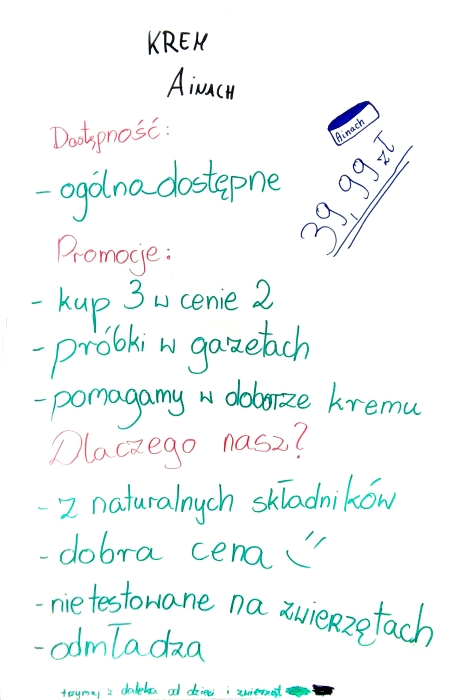 KREM
AINACH
Dostępność:
- ogólnadostępne
Ainach
39,99 zł
Promocje:
- kup 3 w cenie 2
- próbki w gazetach
- pomagamy w doborze kremu
Dlaczego nasz?
- z naturalnych składników
- dobra cena
- nie testowane na zwierzętach
- odmładza
trzymaj z daleka od dzieci i zwierząt